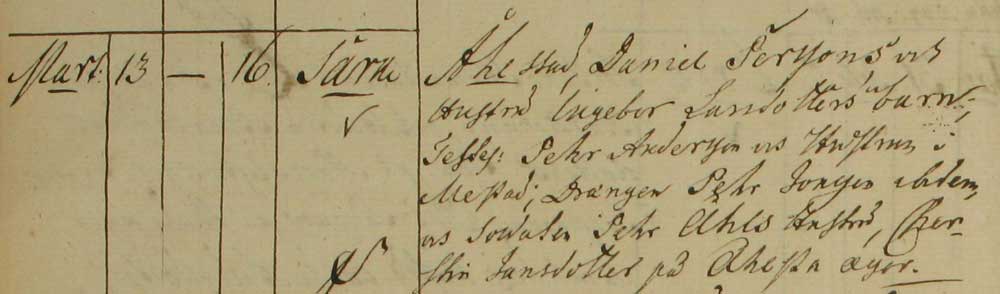 Mart: 13 — 16 Sara Åhlstad, Daniel Persons och
Hustru Ingebor Larsdotters barn,
Testes: Pehr Anderson och Hustrun i
Mestad; Drängen Pehr Jonsen ibdem,
och Soldaten Pehr Åhls Hustru, Cher-
stin Jansdotter på Åhlsta ägor.